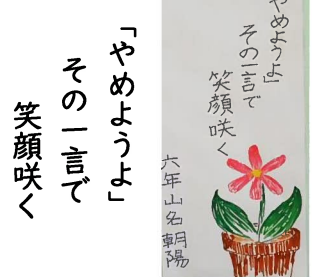 「やめようよ」
その一言で
笑顔咲く
やめようよ」
その一言で
笑顔咲く
六年山名朝陽